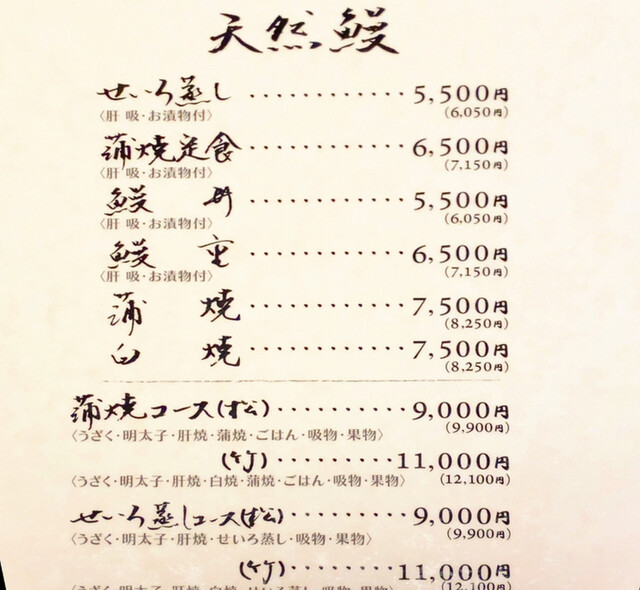 天然鰻
せいろ蒸し ············ 5,500円
(6,050円)
〈肝吸・お漬物付〉
蒲焼定食 ············ 6,500円
(7,150円)
〈肝吸・お漬物付〉
鰻丼 ············ 5,500円
(6,050円)
〈肝吸・お漬物付〉
鰻重 ············ 6,500円
(7,150円)
〈肝吸・お漬物付〉
蒲焼 ············ 7,500円
(8,250円)
白焼 ············ 7,500円
(8,250円)
蒲焼コース(松) ·········· 9,000円
(9,900円)
〈うざく・明太子・肝焼・蒲焼・ごはん・吸物・果物〉
(竹) ·········· 11,000円
(12,100円)
〈うざく・明太子・肝焼・白焼・蒲焼・ごはん・吸物・果物〉
せいろ蒸しコース(松) ·········· 9,000円
(9,900円)
〈うざく・明太子・肝焼・せいろ蒸し・吸物・果物〉
(竹) ·········· 11,000円
(12,100円)
〈うざく・明太子・肝焼・白焼・せいろ蒸し・吸物・果物〉